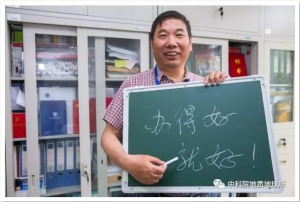 办得好
就好！
中科院地质地球所